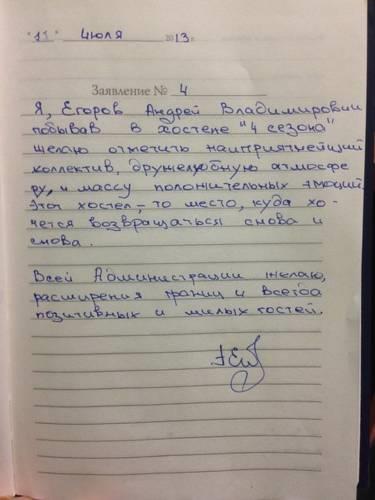 "11" июля 2013 г.
Заявление № 4
Я, Егоров Андрей Владимирович
побывав в хостеле "4 сезона"
желаю отметить наиприятнейший
коллектив, дружелюбную атмосфе
ру, и массу положительных эмоций.
Этот хостел, – то место, куда хо-
чется возвращаться снова и
снова.
Всей Администрации желаю,
расширения границ и всегда
позитивных и милых гостей.